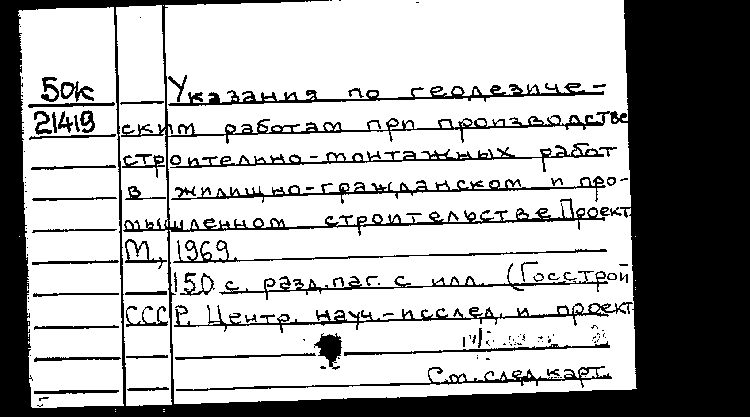 50к
21419
Указания по геодезиче-
ским работам при производстве
строительно-монтажных работ
в жилищно-гражданском и про-
мышленном строительстве Проект
М., 1969.
150 с. разд. паг. с илл. (Госстрой
СССР. Центр. науч.-исслед. и проект
См. след. карт.